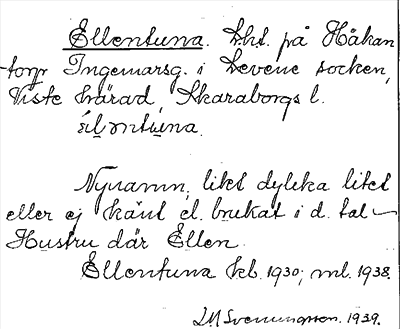 Ellentuna. Lht. på Håkan
torp Ingemarsg. i Levene socken,
Viste härad, Skaraborgs l.
Nynamn, litet dyleka litet
eller ej känt el. brukat i d. tal –
Hustru där Ellen.
Ellentuna kb. 1930; ml. 1938.
1939.